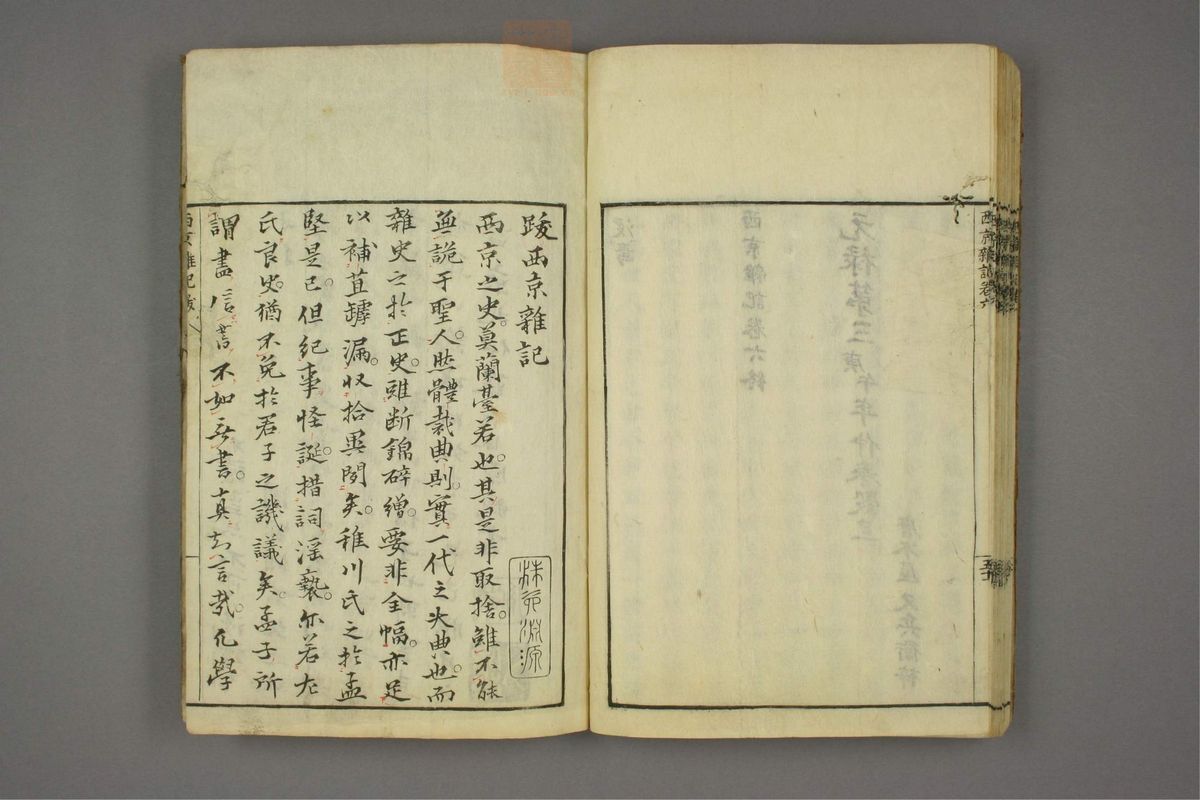 西京雜記卷六
五十
跋西京雜記
西京之史。莫蘭臺若也。其是非取捨。雖不能
無詭于聖人。然體裁典則。實一代之大典也。而
雜史之於正史。雖断錦碎繒。要非全幅。亦足
以補苴罅漏。収拾異聞矣。稚川氏之於孟
堅是已。但紀事怪誕。措詞淫褻。亦若左
氏良史。猶不免於君子之譏議矣。孟子所
謂盡信書不如無書。真知言哉。凡學
西京雜記跋
林苑淵源
元禄第三庚午年
西京雜記卷六終